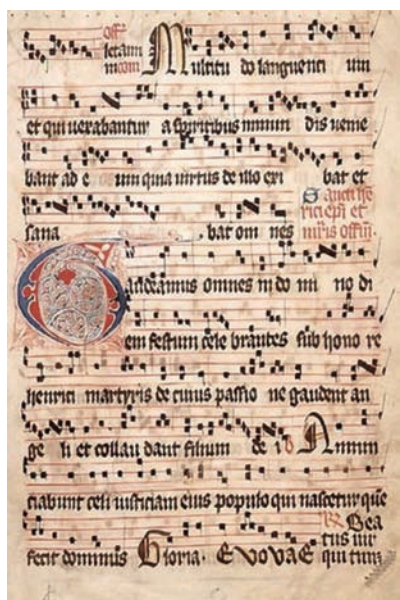 offm
letam
m com Multitu do languenti um
et qui vexabantur a spiritibus inmun dis venie
bant ad e um quia virtus de illo exi bat et
sana bat om nes
Sancti he
rici epi et
mris offm
Gaudeamus omnes in do mi no di
em festum cele brantes sub hono re
henrici martyris de cuius passio ne gaudent an
ge li et collau dant filium de i Annun
ciabunt celi iusticiam eius populo qui nascetur que
fecit dominus Gloria. EVOVAE
Bea
tus vir
qui tim